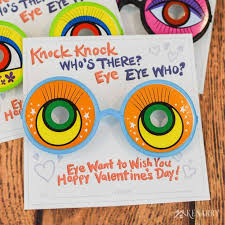 Knock Knock
Who's There?
Eye Eye Who?
Eye Want to Wish You
Happy Valentine's Day!
KENARRY